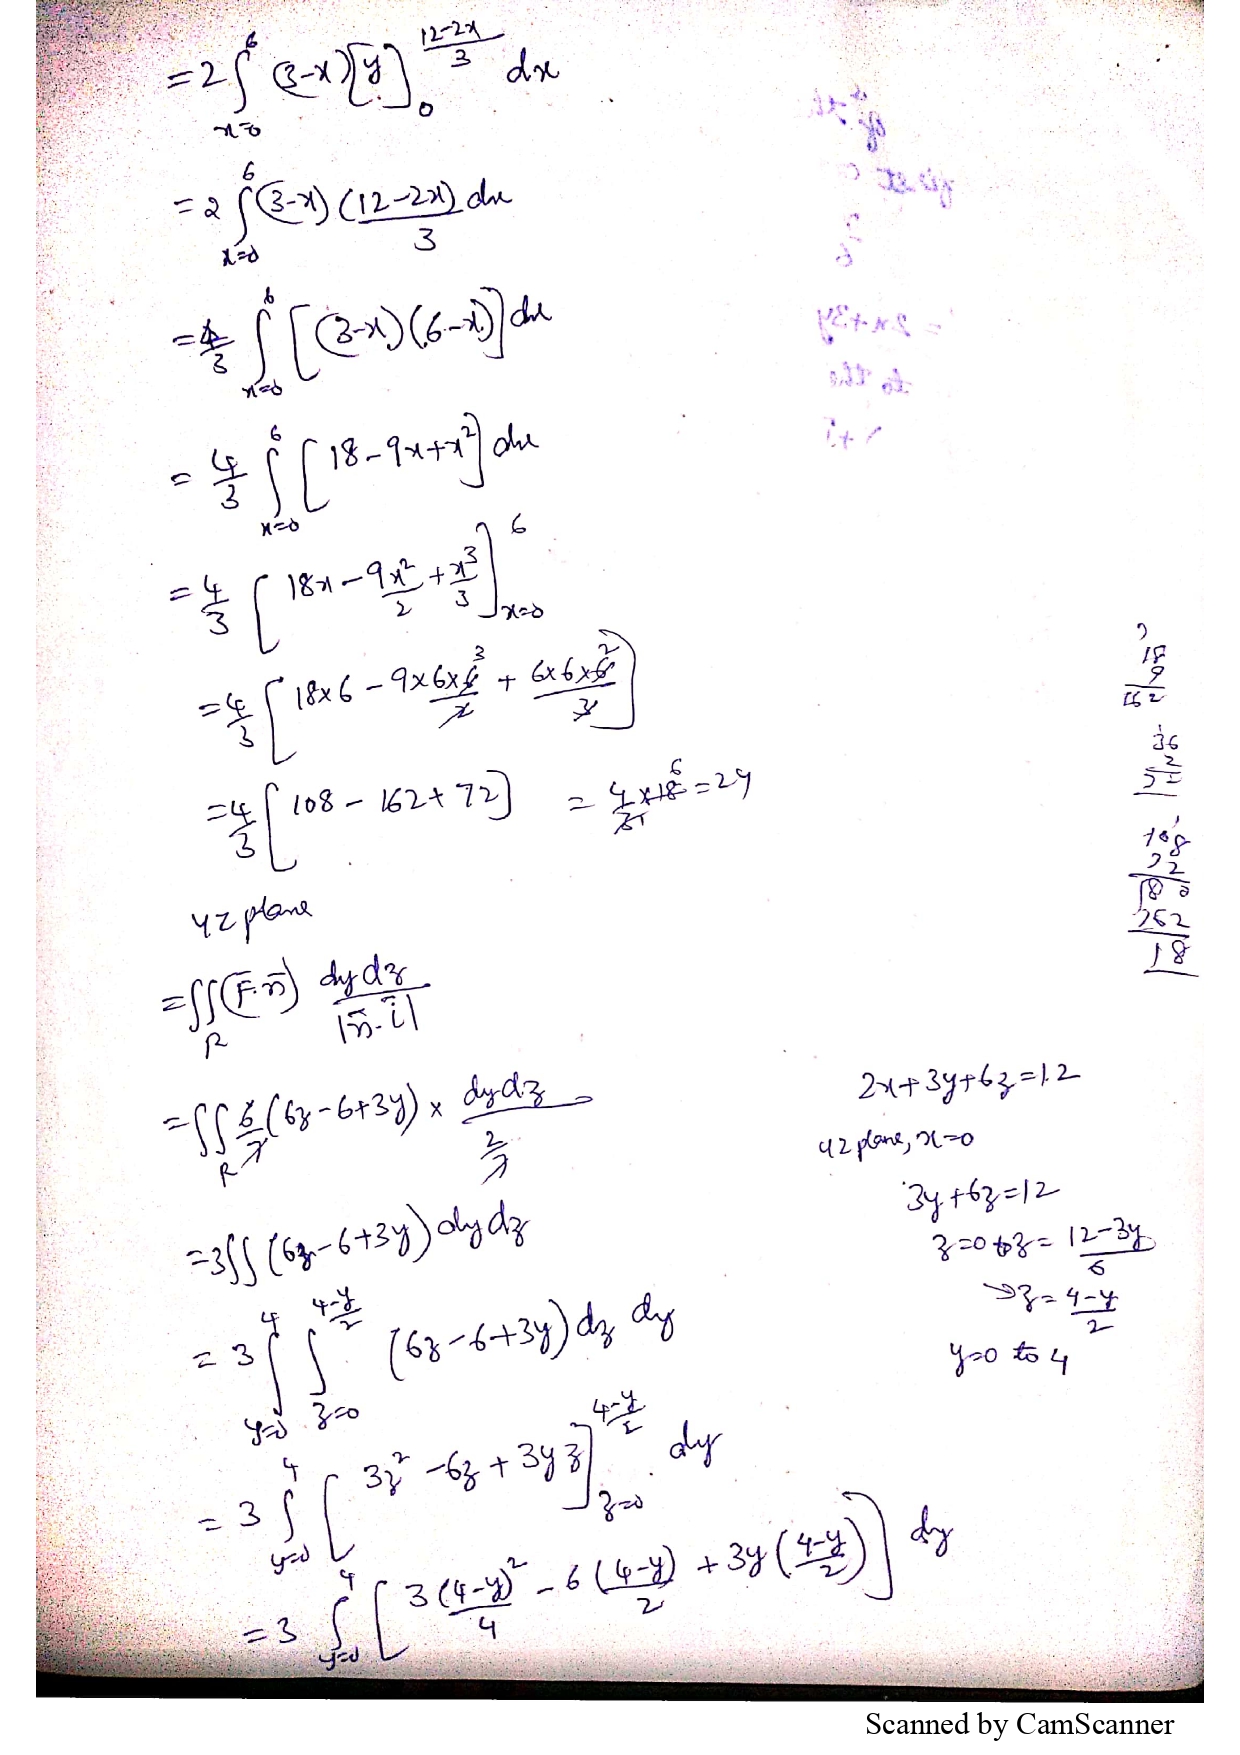 = 2 ∫_{x=0}^{6} (3-x) [y]_{0}^{\frac{12-2x}{3}} dx
= 2 ∫_{x=0}^{6} (3-x) \frac{(12-2x)}{3} dx
= \frac{4}{3} ∫_{x=0}^{6} [(3-x)(6-x)] dx
= \frac{4}{3} ∫_{x=0}^{6} [18-9x+x^2] dx
= \frac{4}{3} [18x - \frac{9x^2}{2} + \frac{x^3}{3}]_{x=0}^{6}
= \frac{4}{3} [18×6 - \frac{9×6×6}{2} 3 + \frac{6×6×6}{3} 2]
= \frac{4}{3} [108 - 162 + 72] = \frac{4×18}{3} 6 = 24
18
9
162
36
2
72
108
72
180
162
18
yz plane
= ∬_R (F̄.n̄) \frac{dydz}{|n̄.ī|}
= ∬_R \frac{6}{7} (6z-6+3y) × \frac{dydz}{\frac{2}{7}}
= 3∬ (6z-6+3y) dydz
= 3 ∫_{y=0}^{4} ∫_{z=0}^{\frac{4-y}{2}} (6z-6+3y) dz dy
= 3 ∫_{y=0}^{4} [3z^2 - 6z + 3yz]_{z=0}^{\frac{4-y}{2}} dy
= 3 ∫_{y=0}^{4} [\frac{3(4-y)^2}{4} - \frac{6(4-y)}{2} + 3y(\frac{4-y}{2})] dy
2x+3y+6z=12
yz plane, x=0
3y+6z=12
z=0 to z = \frac{12-3y}{6}
→ z = \frac{4-y}{2}
y=0 to 4
Scanned by CamScanner